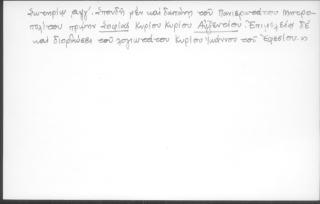 Σωτηρίῳ αψγ΄. Σπουδῇ μὲν καὶ δαπάνῃ τοῦ Πανιερωτάτου Μητρο-
πολίτου πρώην Σοφίας Κυρίου Κυρίου Αὐξεντίου. Ἐπιμελείᾳ δὲ
καὶ διορθώσει τοῦ λογιωτάτου Κυρίου Ἰωάννου τοῦ Ἐφεσίου.»